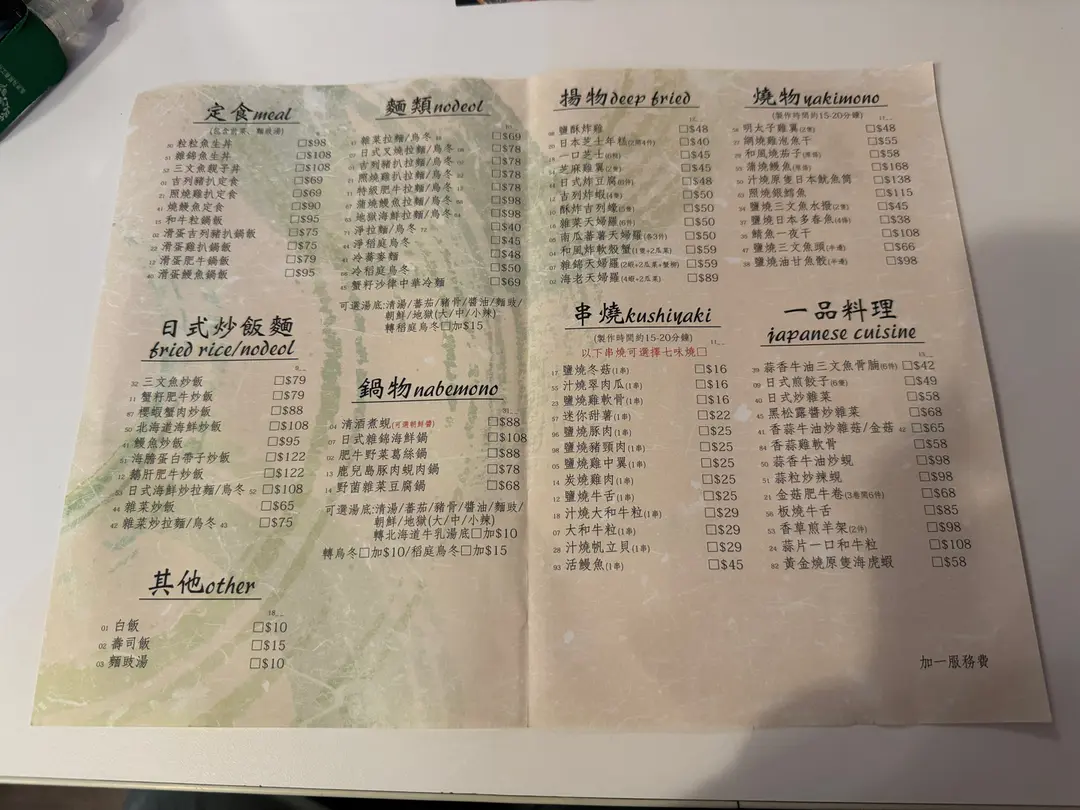 定食meal
(包含前菜、麵豉湯)
粒粒魚生丼 □$98
雜錦魚生丼 □$108
三文魚親子丼 □$108
吉列豬扒定食 □$69
照燒雞扒定食 □$69
燒鰻魚定食 □$90
和牛粒鍋飯 □$95
滑蛋吉列豬扒鍋飯 □$75
滑蛋雞扒鍋飯 □$75
滑蛋肥牛鍋飯 □$79
滑蛋鰻魚鍋飯 □$95
日式炒飯麵
fried rice/nodeol
32 三文魚炒飯 □$79
11 蟹籽肥牛炒飯 □$79
67 櫻蝦蟹肉炒飯 □$88
50 北海道海鮮炒飯 □$108
41 鰻魚炒飯 □$95
51 海膽蛋白帶子炒飯 □$122
12 鵝肝肥牛炒飯 □$122
53 日式海鮮炒拉麵/烏冬 52 □$108
44 雜菜炒飯 □$65
42 雜菜炒拉麵/烏冬 43 □$75
其他other
18
01 白飯 □$10
02 壽司飯 □$15
03 麵豉湯 □$10
麵類nodeol
雜菜拉麵/烏冬 □$69
日式叉燒拉麵/烏冬 □$78
吉列豬扒拉麵/烏冬 □$78
照燒雞扒拉麵/烏冬 □$78
特級肥牛拉麵/烏冬 □$78
蒲燒鰻魚拉麵/烏冬 □$98
地獄海鮮拉麵/烏冬 □$98
淨拉麵/烏冬 72 □$40
淨稻庭烏冬 □$45
冷蕎麥麵 □$48
冷稻庭烏冬 □$50
蟹籽沙律中華冷麵 □$69
可選湯底:清湯/蕃茄/豬骨/醬油/麵豉/
朝鮮/地獄(大/中/小辣)
轉稻庭烏冬□加$15
鍋物nabemono
04 清酒煮蜆(可選朝鮮醬) □$88
07 日式雜錦海鮮鍋 □$108
02 肥牛野菜葛絲鍋 □$88
13 鹿兒島豚肉蜆肉鍋 □$78
14 野菌雜菜豆腐鍋 □$68
可選湯底:清湯/蕃茄/豬骨/醬油/麵豉/
朝鮮/地獄(大/中/小辣)
轉北海道牛乳湯底□加$10
轉烏冬□加$10/稻庭烏冬□加$15
揚物deep fried
鹽酥炸雞 □$48
日本芝士年糕(2開4件) □$40
一口芝士(6粒) □$45
芝麻雞翼(2隻) □$45
日式炸豆腐(6件) □$48
吉列炸蝦(4隻) □$50
酥炸吉列蠔(5隻) □$50
雜菜天婦羅(6件) □$50
南瓜蕃薯天婦羅(各3件) □$50
和風炸軟殼蟹(1隻+2瓜菜) □$59
雜錦天婦羅(2蝦+2瓜菜+蟹柳) □$59
海老天婦羅(4蝦+2瓜菜) □$89
串燒kushiyaki
(製作時間約15-20分鐘)
以下串燒可選擇七味燒□
17 鹽燒冬菇(1串) □$16
55 汁燒翠肉瓜(1串) □$16
23 鹽燒雞軟骨(1串) □$16
57 迷你甜薯(1串) □$22
96 鹽燒豚肉(1串) □$25
98 鹽燒豬頸肉(1串) □$25
05 鹽燒雞中翼(1串) □$25
14 炭燒雞肉(1串) □$25
12 鹽燒牛舌(1串) □$25
18 汁燒大和牛粒(1串) □$29
07 大和牛粒(1串) □$29
28 汁燒帆立貝(1串) □$29
93 活鰻魚(1串) □$45
燒物yakimono
(製作時間約15-20分鐘)
明太子雞翼(2隻) □$48
鋼燒雞泡魚干 □$55
和風燒茄子(原條) □$58
蒲燒鰻魚(原條) □$168
汁燒原隻日本魷魚筒 □$138
照燒銀鱈魚 □$115
鹽燒三文魚水撥(2隻) □$45
鹽燒日本多春魚(4條) □$38
鯖魚一夜干 □$108
鹽燒三文魚頭(半邊) □$66
鹽燒油甘魚鮫(半邊) □$98
一品料理
japanese cuisine
39 蒜香牛油三文魚骨腩(6件) □$42
09 日式煎餃子(6隻) □$49
40 日式炒雜菜 □$58
45 黑松露醬炒雜菜 □$68
41 香蒜牛油炒雜菇/金菇 42 □$65
84 香蒜雞軟骨 □$58
50 蒜香牛油炒蜆 □$98
51 蒜粒炒辣蜆 □$98
21 金菇肥牛卷(3卷開6件) □$68
56 板燒牛舌 □$85
53 香草煎羊架(2件) □$98
24 蒜片一口和牛粒 □$108
82 黃金燒原隻海虎蝦 □$58
加一服務費